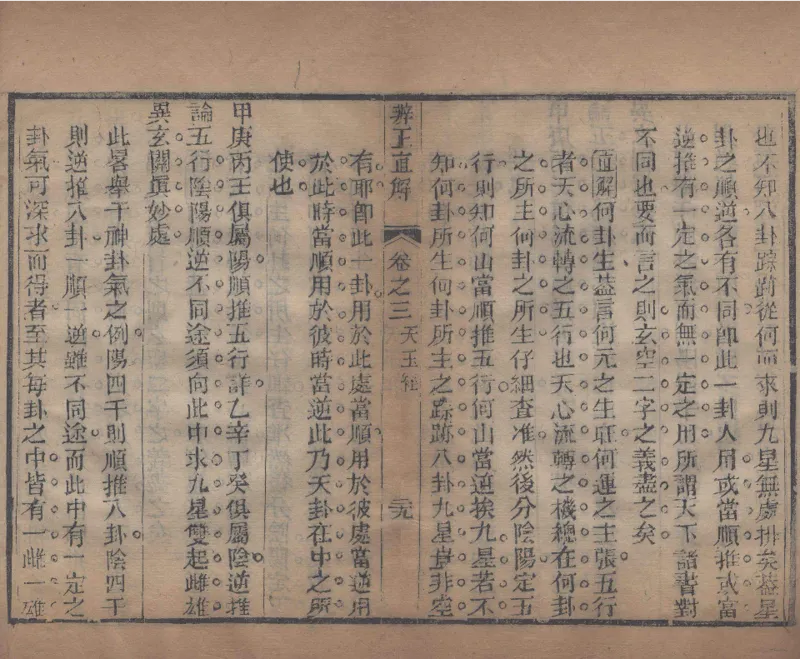 也不知八卦踪跡從何而求則九星無處排矣葢星
卦之順逆各有不同卽此一卦入用或當順推或當
逆推有一定之氣而無一定之用所謂天下諸書對
不同也要而言之則玄空二字之義盡之矣
直解何卦生葢言何元之生旺何運之主張五行
者天心流轉之五行也天心流轉之機總在何卦
之所主何卦之所生仔細查准然後分陰陽定五
行則知何山當順推五行何山當逆挨九星若不
知何卦所生何卦所主之踪跡八卦九星豈非空
辨正直解 卷之三 天玉經 三九
有耶卽此一卦用於此處當順用於彼處當逆用
於此時當順用於彼時當逆此乃天卦在中之所
使也
甲庚丙壬俱屬陽順推五行詳乙辛丁癸俱屬陰逆推
論五行陰陽順逆不同途須向此中求九星雙起雌雄
異玄關眞妙處
此畧舉干神卦氣之例陽四干則順推八卦陰四干
則逆推八卦一順一逆雖不同途而此中有一定之
卦氣可深求而得者至其每卦之中皆有一雌一雄